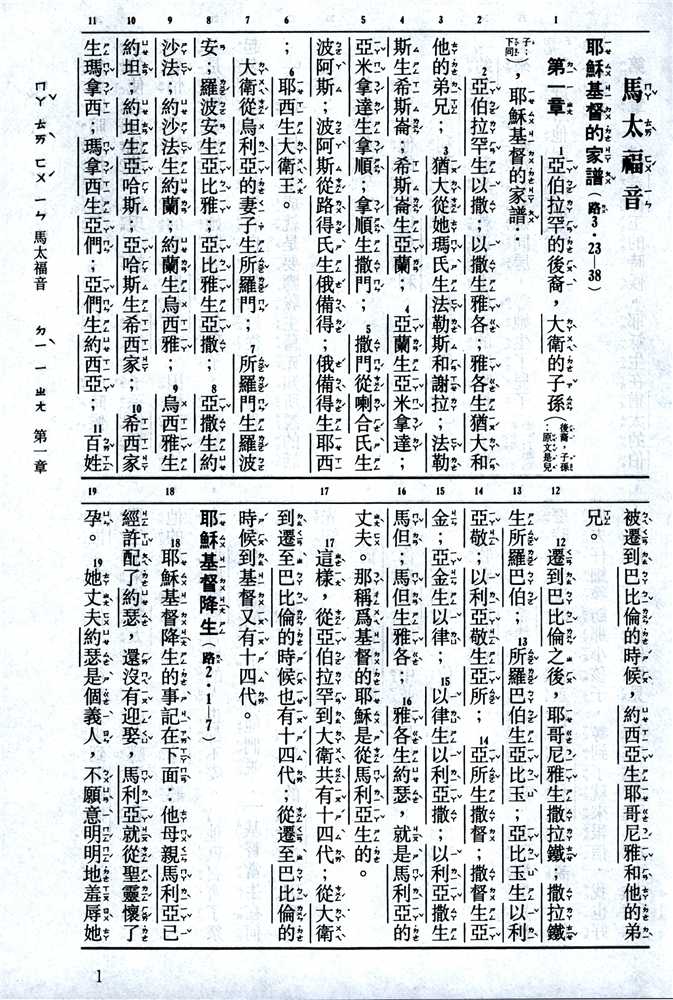 馬太福音
耶穌基督的家譜（路3·23—38）
第一章 1亞伯拉罕的後裔，大衛的子孫（後裔，子孫：原文是兒
子；下同），耶穌基督的家譜：
2亞伯拉罕生以撒；以撒生雅各；雅各生猶大和
他的弟兄；3猶大從她瑪氏生法勒斯和謝拉；法勒
斯生希斯崙；希斯崙生亞蘭；4亞蘭生亞米拿達；
亞米拿達生拿順；拿順生撒門；5撒門從喇合氏生
波阿斯；波阿斯從路得氏生俄備得；俄備得生耶西
；6耶西生大衛王。
大衛從烏利亞的妻子生所羅門；7所羅門生羅波
安；羅波安生亞比雅；亞比雅生亞撒；8亞撒生約
沙法；約沙法生約蘭；約蘭生烏西雅；9烏西雅生
約坦；約坦生亞哈斯；亞哈斯生希西家；10希西家
生瑪拿西；瑪拿西生亞們；亞們生約西亞；11百姓
被遷到巴比倫的時候，約西亞生耶哥尼雅和他的弟
兄。
12遷到巴比倫之後，耶哥尼雅生撒拉鐵；撒拉鐵
生所羅巴伯；13所羅巴伯生亞比玉；亞比玉生以利
亞敬；以利亞敬生亞所；14亞所生撒督；撒督生亞
金；亞金生以律；15以律生以利亞撒；以利亞撒生
馬但；馬但生雅各；16雅各生約瑟，就是馬利亞的
丈夫。那稱爲基督的耶穌是從馬利亞生的。
17這樣，從亞伯拉罕到大衛共有十四代；從大衛
到遷至巴比倫的時候也有十四代；從遷至巴比倫的
時候到基督又有十四代。
耶穌基督降生（路2·1—7）
18耶穌基督降生的事記在下面：他母親馬利亞已
經許配了約瑟，還沒有迎娶，馬利亞就從聖靈懷了
孕。19她丈夫約瑟是個義人，不願意明明地羞辱她
ㄇㄚˇ ㄊㄞˋ ㄈㄨˊ ㄧㄣ 馬太福音 ㄉㄧˋ ㄧ ㄓㄤ 第一章
1